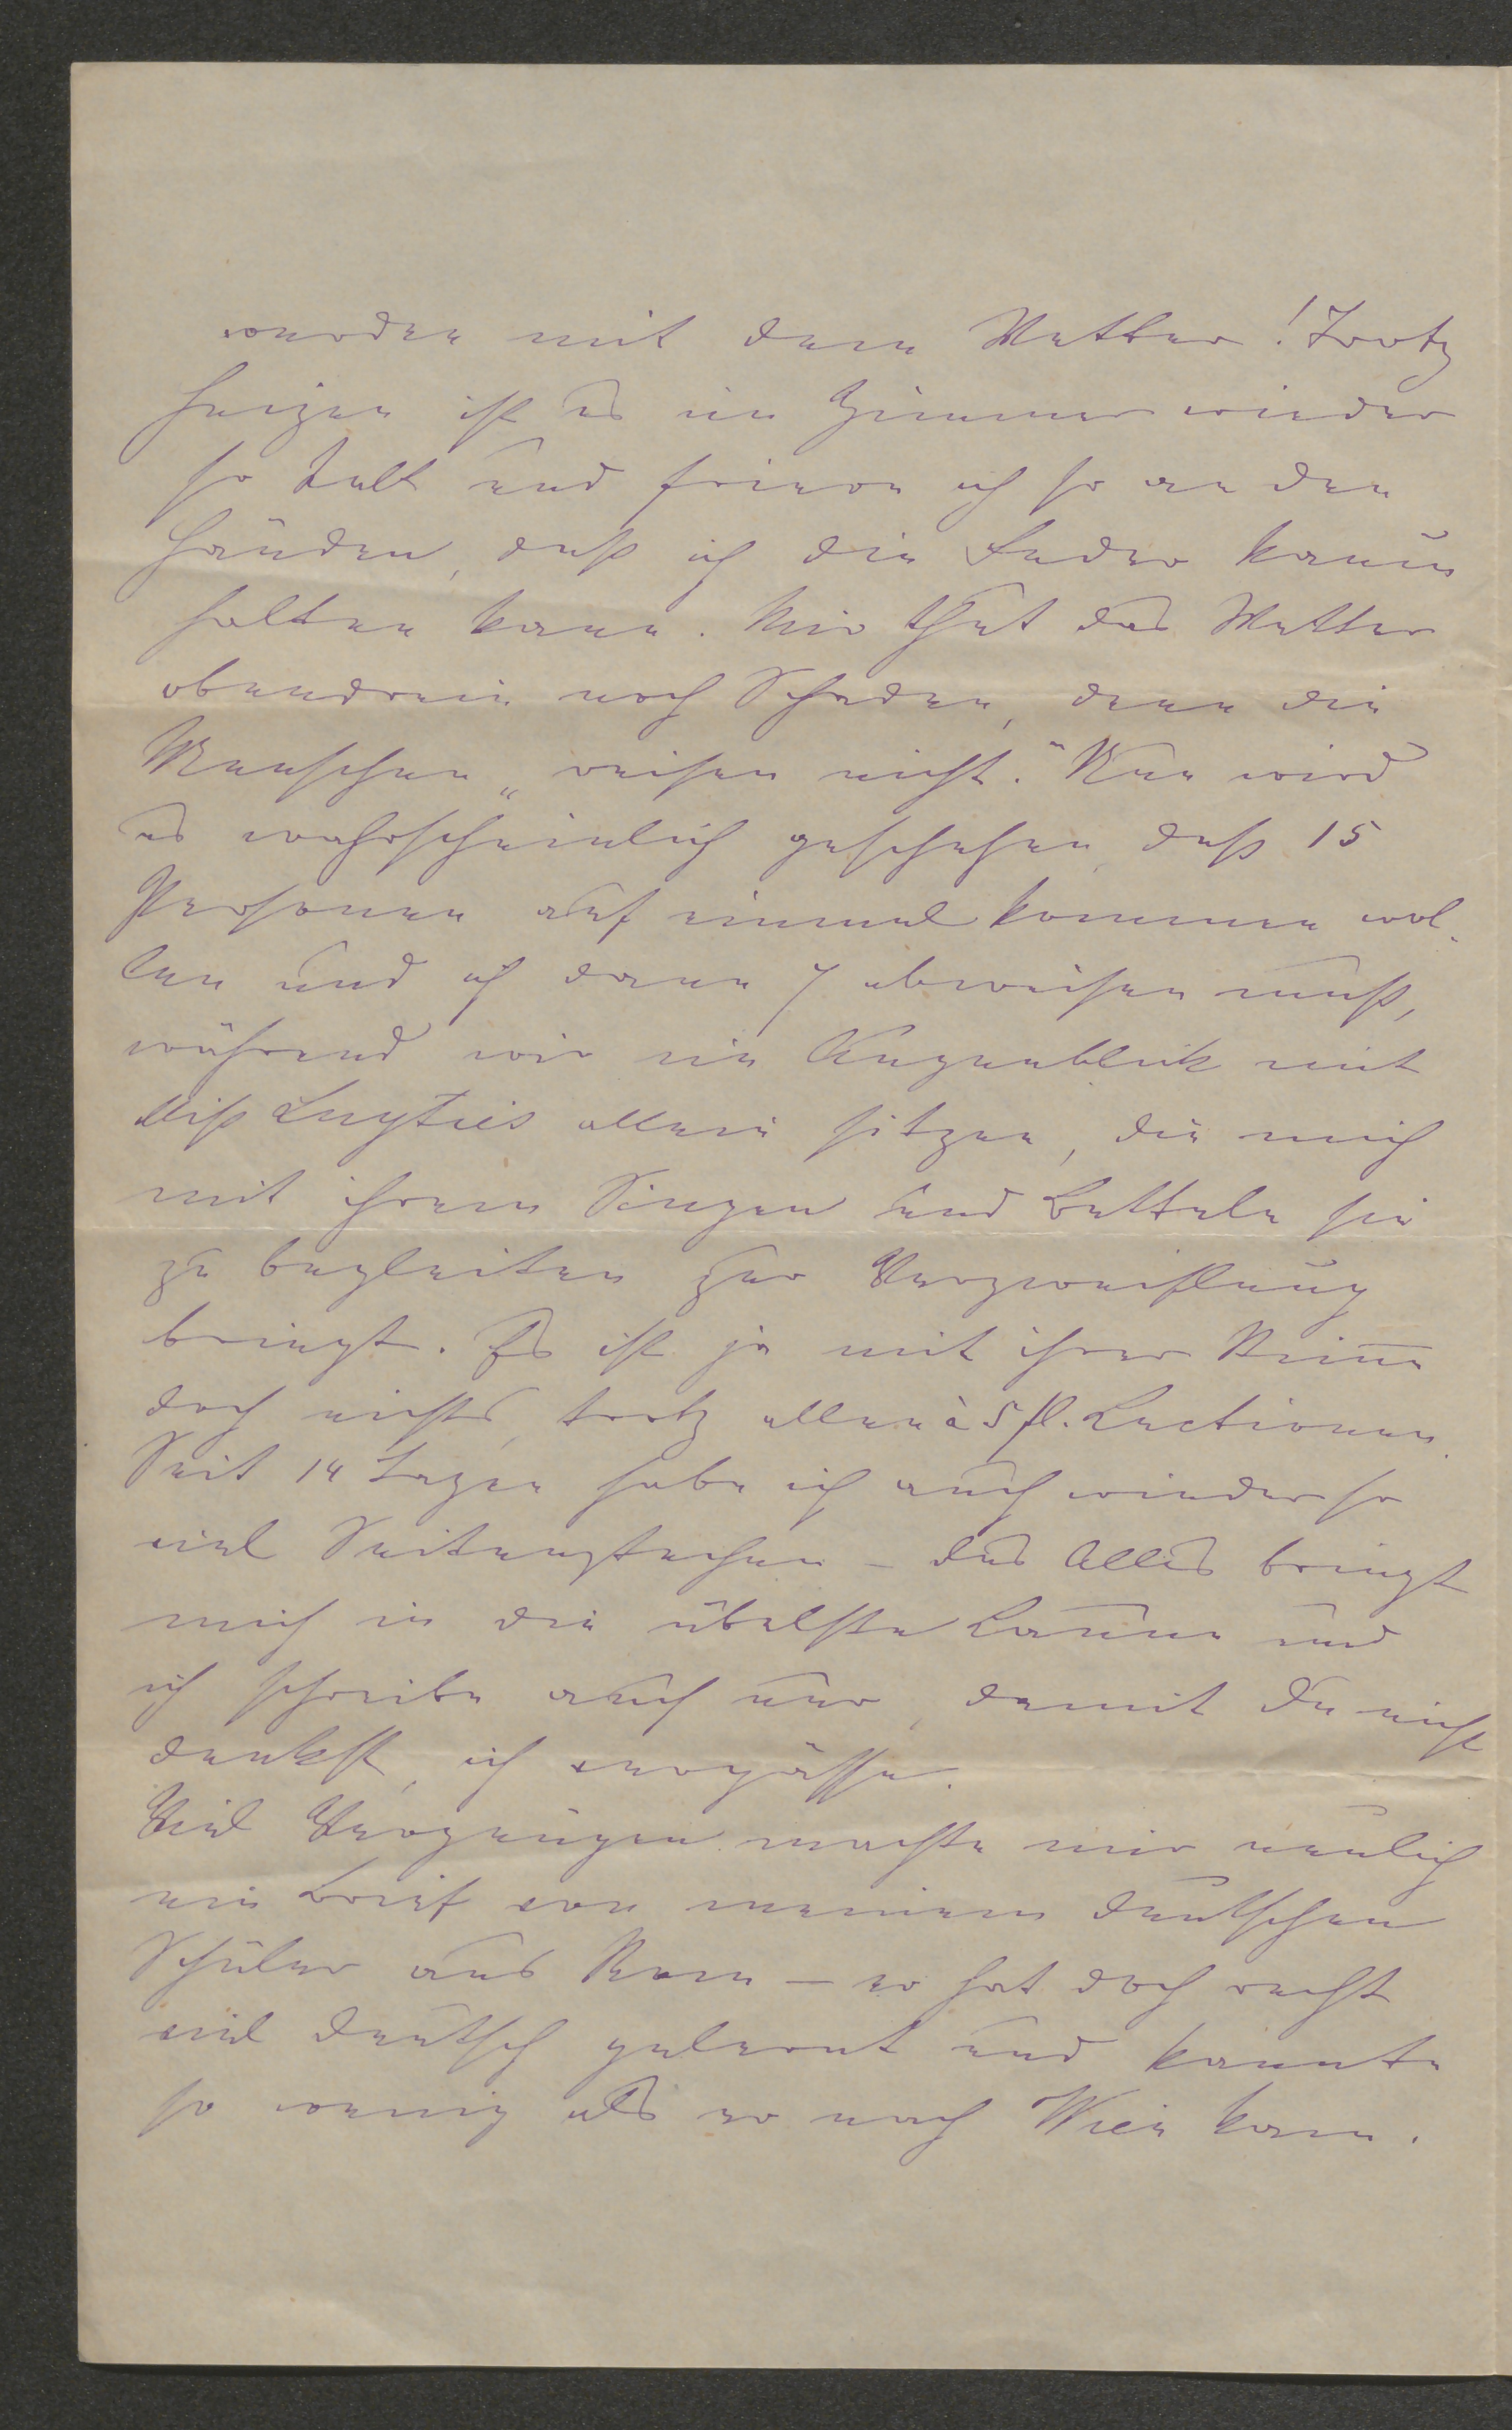 werden mit dem Wetter! Trotz
Heizen ist es im Zimmer wieder
so kalt und friere ich so an den
Händen, daß ich die Feder kaum
halten kann. Mir thut das Wetter
obendrein noch Schaden, denn die
Menschen „reisen nicht." Nun wird
es wahrscheinlich geschehen, daß 15
Personen auf einmal kommen wol-
len und ich dann 7 abweisen muß,
während wir im Augenblick mit
Miß allein sitzen, die mich
mit ihrem Singen und Betteln sie
zu begleiten zur Verzweiflung
bringt. Es ist ja mit ihrer Stimme
doch nichts, trotz allen à 5 fl. Lectionen.
Seit 14 Tagen habe ich auch wieder so
viel Seitenstechen – das Alles bringt
mich in die übelste Laune und
ich schreibe auch nur, damit Du nicht
denkst, ich vergässe.
Viel Vergnügen machte mir neulich
ein Brief von meinem deutschen
Schüler aus Rom – er hat doch recht
viel deutsch gelernt und kannte
so wenig als er nach Wien kam.